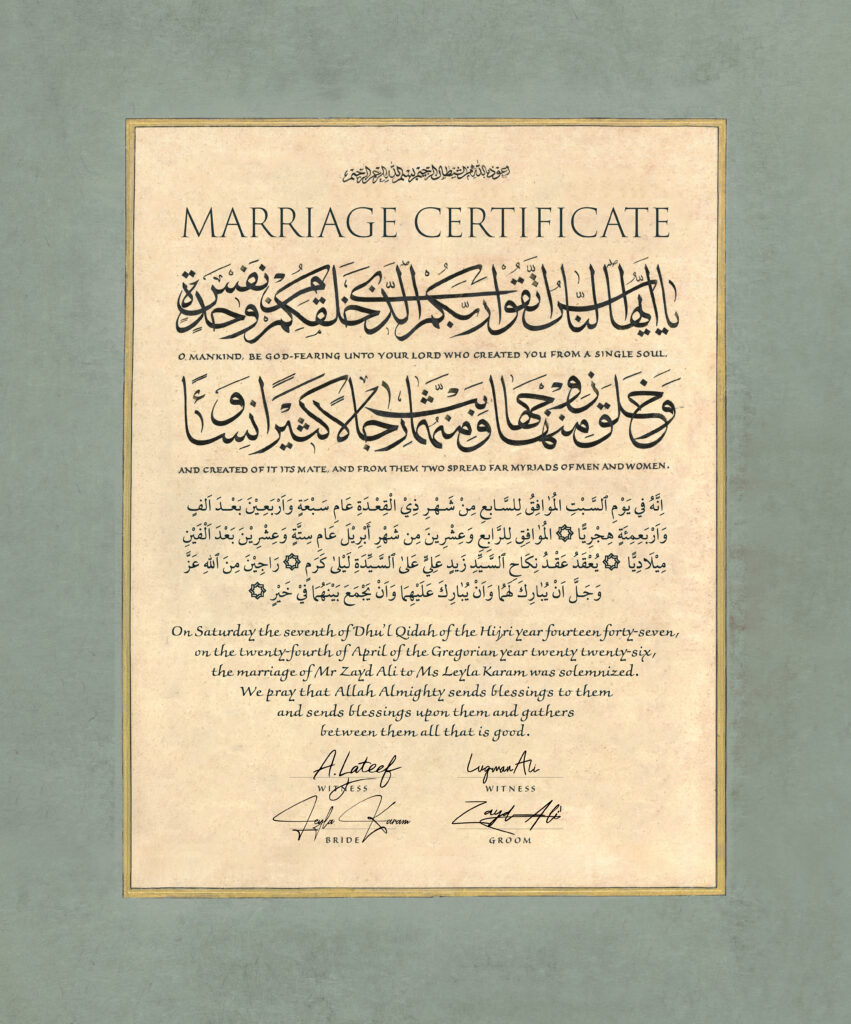 اعوذ بالله من الشيطان الرجيم بسم الله الرحمن الرحيم
MARRIAGE CERTIFICATE
يا ايها الناس اتقوا ربكم الذي خلقكم من نفس وحدة
O, MANKIND, BE GOD-FEARING UNTO YOUR LORD WHO CREATED YOU FROM A SINGLE SOUL,
وخلق منها زوجها وبث منهما رجالا كثيرا ونساء
AND CREATED OF IT ITS MATE, AND FROM THEM TWO SPREAD FAR MYRIADS OF MEN AND WOMEN.
اِنَّهُ في يَوْمِ السَّبْتِ الْمُوٰافِقُ لِلسَّابِعِ مِنْ شَهْرِ ذِيْ الْقِعْدَةِ عَامِ سَبْعَةٍ وَاَرْبَعِيْنَ بَعْدَ اَلفٍ
وَاَرْبَعِمِئَةٍ هِجْرِيًّا ۞ الْمُوٰافِقِ لِلرَّابِعِ وَعِشْرِيْنَ مِن شَهْرِ أَبْرِيْلَ عَامِ سِتَّةٍ وَعِشْرِيْنَ بَعْدَ اَلْفَيْنِ
مِيْلَادِيًّا ۞ يُعْقَدُ عَقْدُ نِكَاحِ السَّيِّدِ زَيدِ عَلِيٍّ عَلىٰ السَّيِّدَةِ لَيْلىٰ كَرَمٍ ۞ رَاجِيْنَ مِنَ اللهِ عَزَّ
وَجَلَّ اَنْ يُبَارِكَ لَهُمَا وَاَنْ يُبَارِكَ عَلَيْهِمَا وَاَنْ يَجْمَعَ بَيْنَهُمَا فيْ خَيْرٍ ۞
On Saturday the seventh of Dhu'l Qidah of the Hijri year fourteen forty-seven,
on the twenty-fourth of April of the Gregorian year twenty twenty-six,
the marriage of Mr Zayd Ali to Ms Leyla Karam was solemnized.
We pray that Allah Almighty sends blessings to them
and sends blessings upon them and gathers
between them all that is good.
A.Lateef Luqman Ali
WITNESS WITNESS
Leyla Karam Zayd Ali
BRIDE GROOM